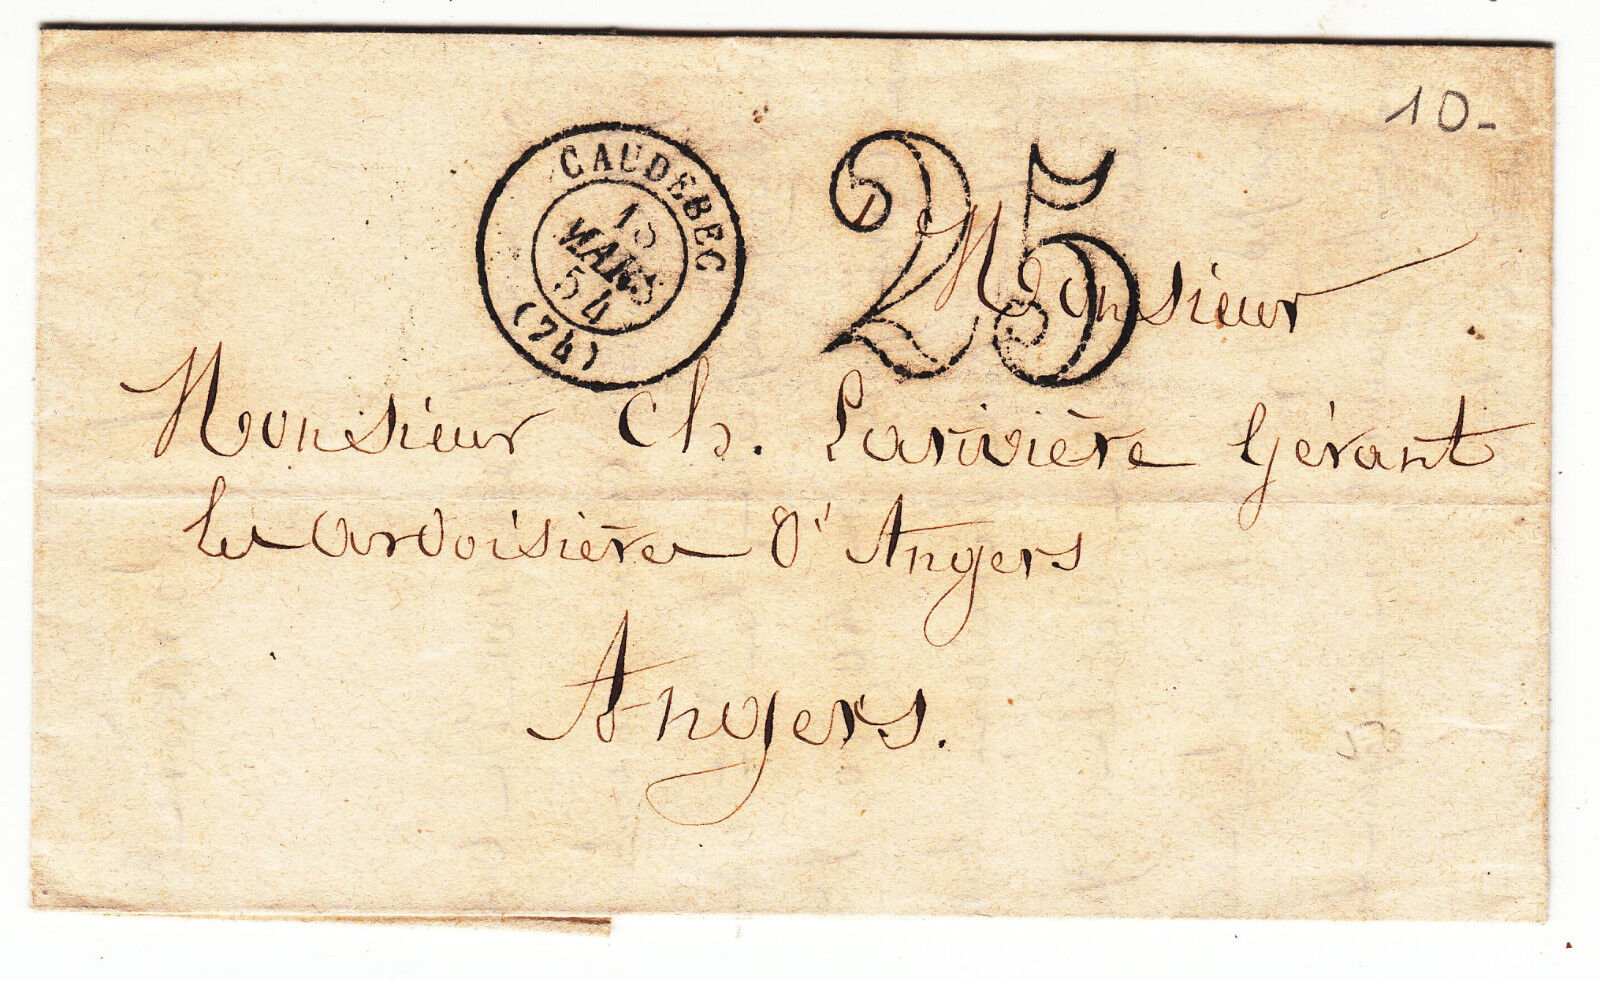 10-
CAUDEBEC
MARS
54
(74)
25
Monsieur
Monsieur Ch. Larivière Gérant
le ardoisière d'Angers
Angers.